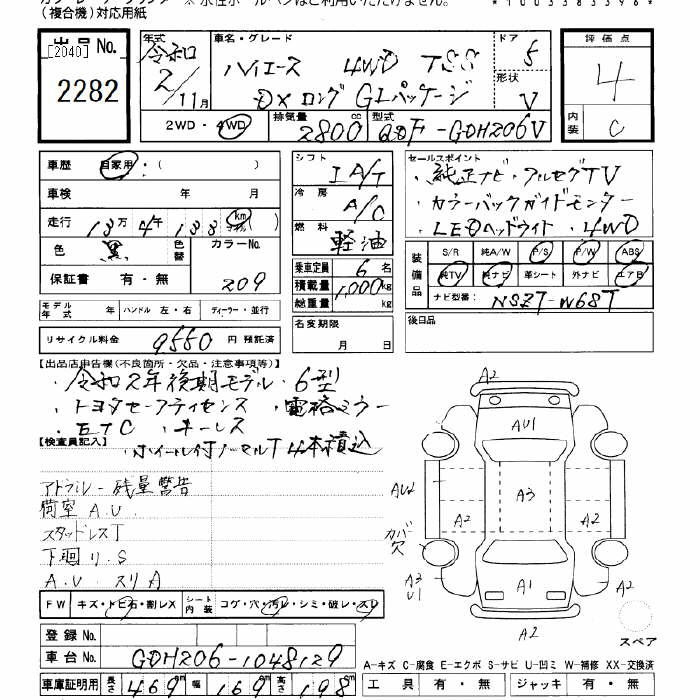 (複合機)対応用紙
出品No.
[2040]
2282
年式 令和 2/11月
車名・グレード ハイエース 4WD TSS
DXロング GLパッケージ
ドア 5
形状 V
評価点 4
内装 C
2WD・4WD
排気量 2800cc
型式 QDF-GDH206V
車歴 自家用・( )
車検 年 月
走行 13万4千133km
色 黒 色替 カラーNo. 209
保証書 有・無
シフト IA/T
冷房 A/C
燃料 軽油
乗車定員 6名
積載量 1,000kg
総重量 kg
セールスポイント
・純正ナビ・フルセグTV
・カラーバックガイドモニター
・LEDヘッドライト ・4WD
装備品 S/R 純A/W P/S P/W ABS
純TV 純ナビ 革シート 外ナビ エアB
ナビ型番: NSZT-W68T
モデル年式 年 ハンドル 左・右 ディーラー・並行
リサイクル料金 9550円 預託済
名変期限 月 日
後日品
【出品店申告欄(不良箇所・欠品・注意事項等)】
・令和2年後期モデル・6型
・トヨタセーフティセンス ・電格ミラー
・ETC ・キーレス
・ホイール付ノーマルT4本積込
【検査員記入】
アドブルー残量警告
荷室 A.U.
スタッドレスT
下廻り.S
A.U. スリA
FW キズ・トビ石・割レX シート内装 コゲ・穴・汚レ・シミ・破レ・スレ
A2
AU1
AU2
A3
A2
A2
カバー欠
A3
U1
A1
A2
スペア
登録No.
車台No. GDH206-1048129
車庫証明用 長さ 469 幅 169 高さ 198cm
A-キズ C-腐食 E-エクボ S-サビ U-凹ミ W-補修 XX-交換済
工具 有・無 ジャッキ 有・無